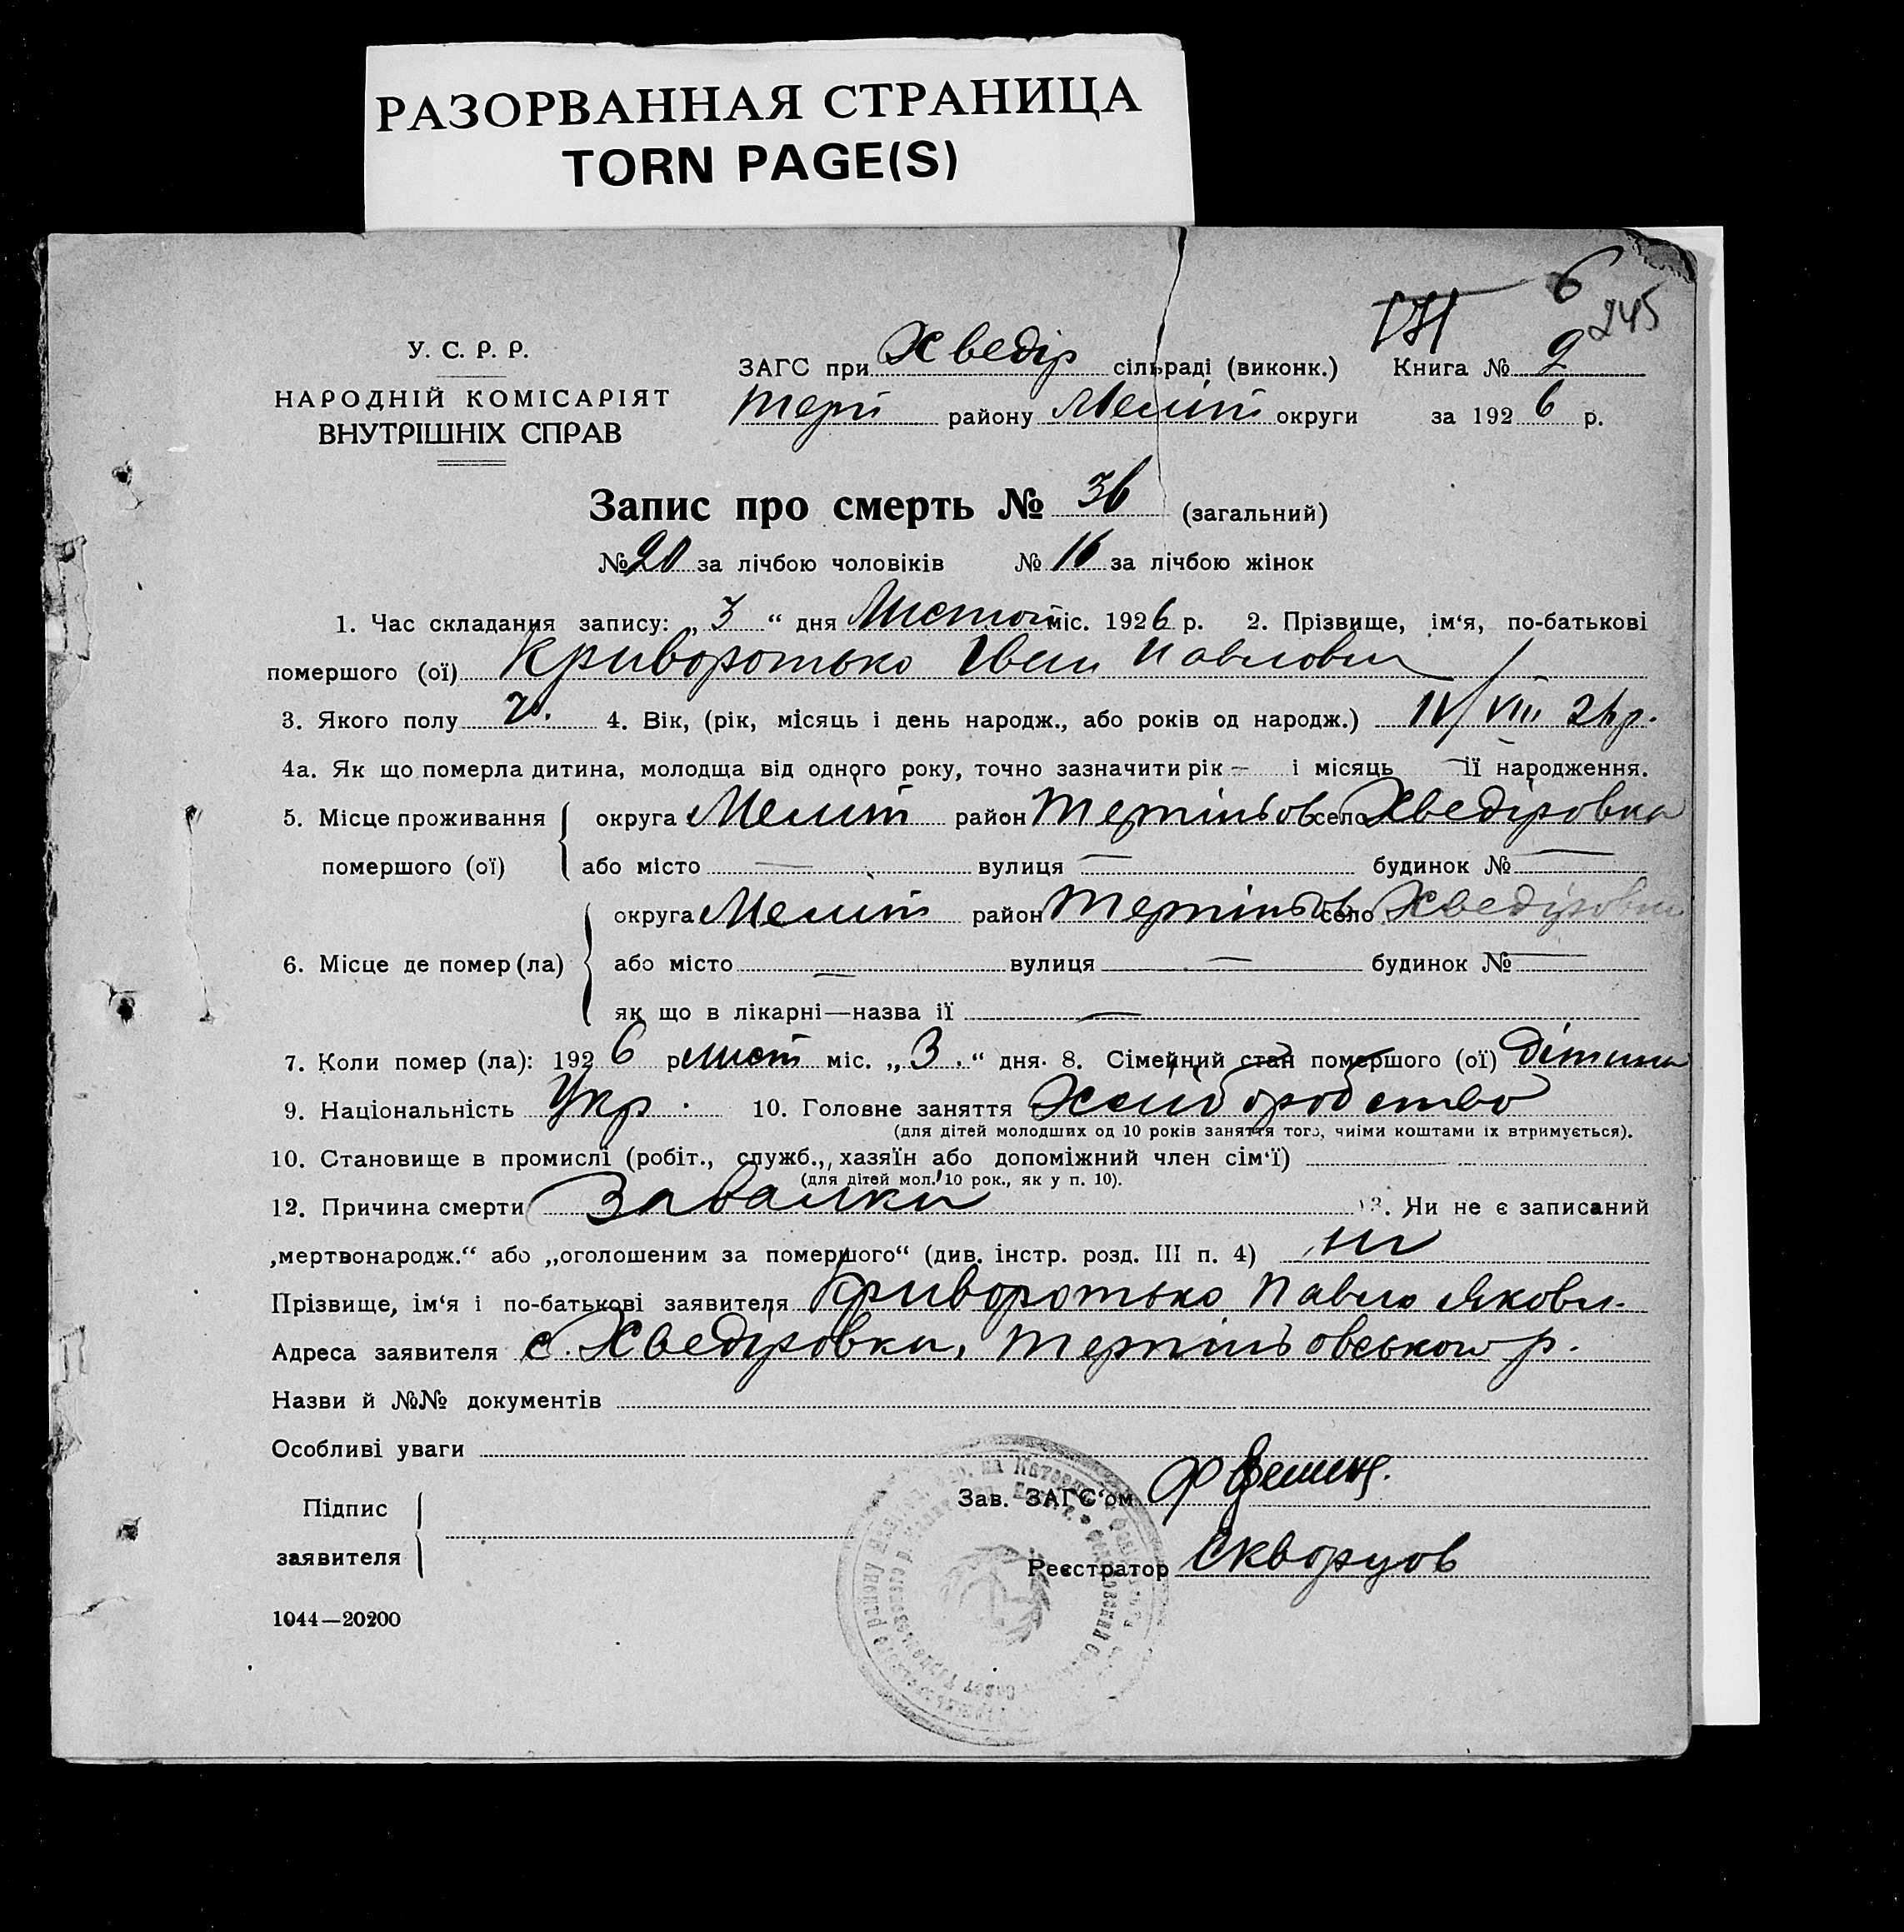 РАЗОРВАННАЯ СТРАНИЦА
TORN PAGE(S)
6
245
У. С. Р. Р.
НАРОДНІЙ КОМІСАРІЯТ
ВНУТРІШНІХ СПРАВ
ЗАГС при Хведір сільраді (виконк.) Книга № 2
Терп району Меліт округи за 1926 р.
Запис про смерть № 36 (загальний)
№ 20 за лічбою чоловіків № 16 за лічбою жінок
1. Час складання запису: „3“ дня Листоп міс. 1926 р. 2. Прізвище, ім‘я, по-батькові
помершого (ої) Криворотько Іван Павлович
3. Якого полу ч. 4. Вік, (рік, місяць і день народж., або років од народж.) IV/VIII 26 р.
4а. Як що померла дитина, молодща від одного року, точно зазначити рік — і місяць — її народження.
5. Місце проживання округа Меліт район Терпіньов село Хведіровка
помершого (ої) або місто — вулиця — будинок № —
округа Меліт район Терпіньов село Хведіровка
6. Місце де помер (ла) або місто — вулиця — будинок № —
як що в лікарні—назва її —
7. Коли помер (ла): 1926 р лист міс. „3.“ дня. 8. Сімейний стан помершого (ої) дітина
9. Національність Укр. 10. Головне заняття Хліборобство
(для дітей молодших од 10 років заняття того, чиїми коштами їх втримується).
10. Становище в промислі (робіт., служб., хазяїн або допоміжний член сім‘ї)
(для дітей мол. 10 рок., як у п. 10).
12. Причина смерти Завалки 13. Чи не є записаний
„мертвонародж.“ або „оголошеним за помершого“ (див. інстр. розд. III п. 4) ні
Прізвище, ім‘я і по-батькові заявителя Криворотько Павло Якови.
Адреса заявителя с. Хведіровка, Терпіньовського р.
Назви й №№ документів
Особливі уваги
Зав. ЗАГС‘ом
Підпис
заявителя
Реєстратор Скворцов
1044—20200